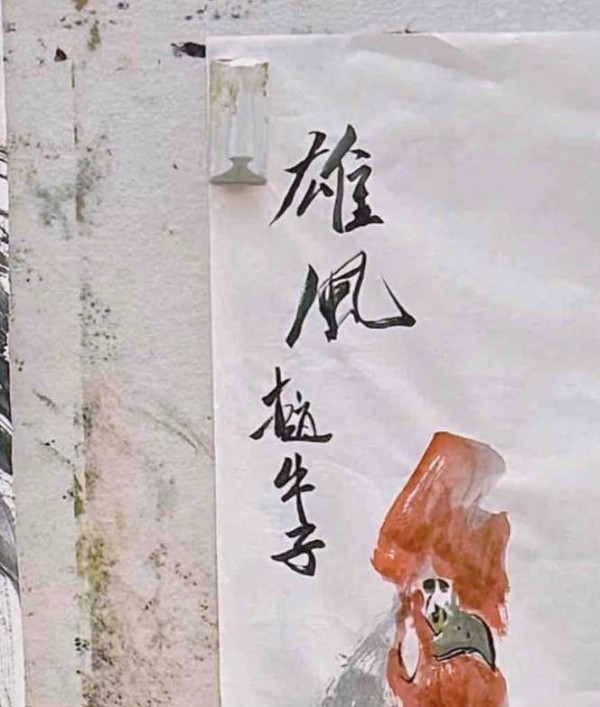 雄風
牛子